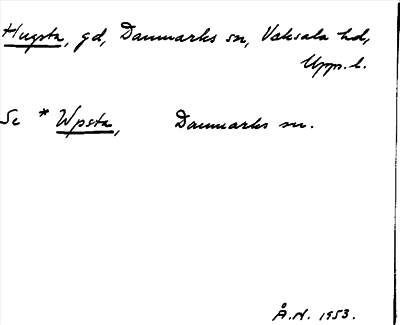 Hugsta, gd, Danmarks sn, Vaksala hd,
Upps. l.
Se * Wpsta, Danmarks sn.
Å.N. 1953.